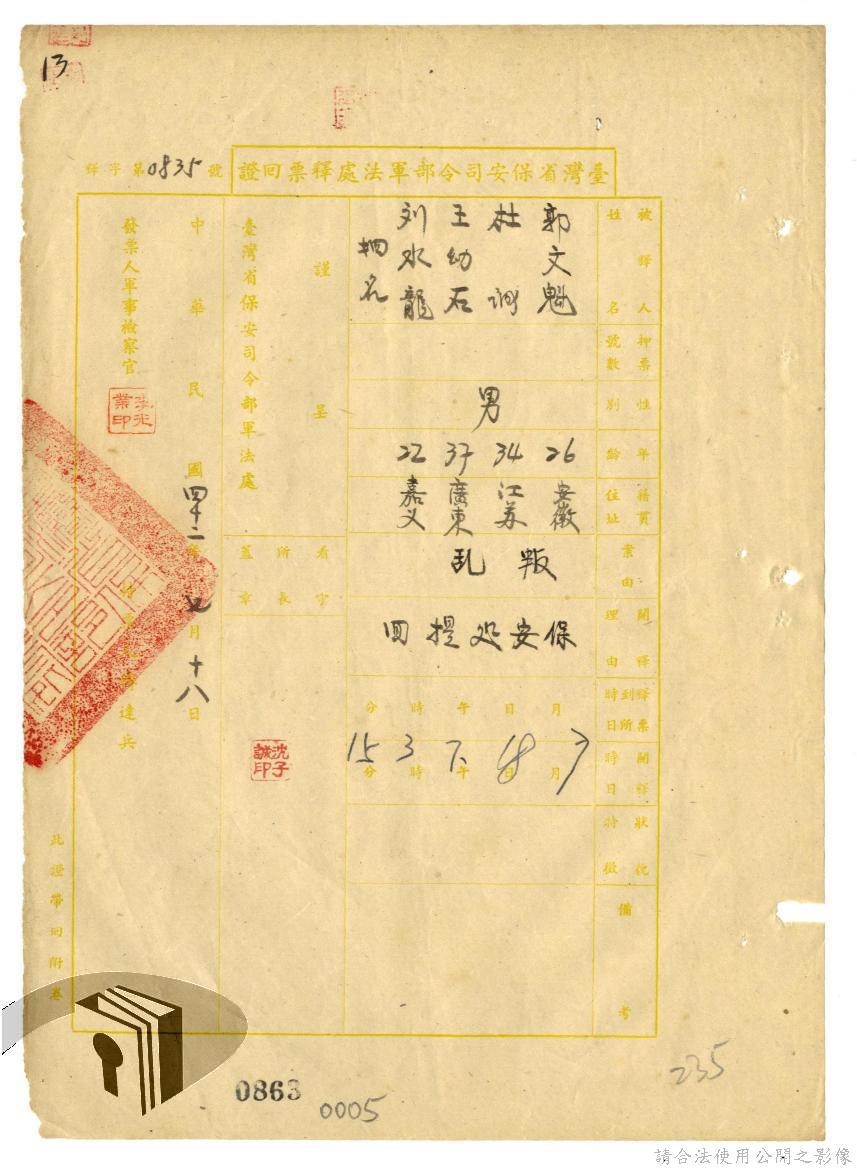 13
臺灣省保安司令部軍法處釋票回證
釋字第0835號
被釋人姓名
郭文魁
杜
王幼石
刘水龍
四名
押票號數
性別
男
年齡
26
34
37
22
籍貫住址
安徽
江苏
廣東
嘉义
案由
叛乱
開釋理由
保安处提回
釋票到所時日
月日午時分
開釋時日
7月18日下午3時15分
狀況特徵
備考
謹呈
臺灣省保安司令部軍法處
看守所所長蓋章
沈子誠印
中華民國四十二年七月十八日
發票人軍事檢察官
李光業印
達兵
此證帶回附卷
0863
0005
235
請合法使用公開之影像